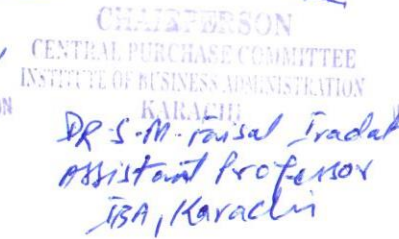 CHAIRPERSON
CENTRAL PURCHASE COMMITTEE
INSTITUTE OF BUSINESS ADMINISTRATION
KARACHI
ON
DR-S-M-Faisal Iradat
Assistant Professor
IBA, Karachi